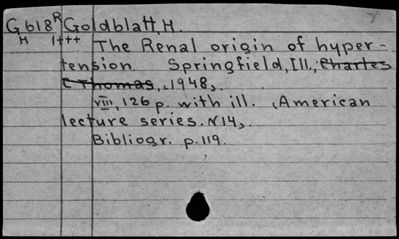 G618R Goldblatt, H.
H 1+++ The Renal origin of hyper-
tension. Springfield, Ill., Charles
C Thomas, 1948.
VIII, 126 p. with ill. (American
lecture series. N14).
Bibliogr. p. 119.